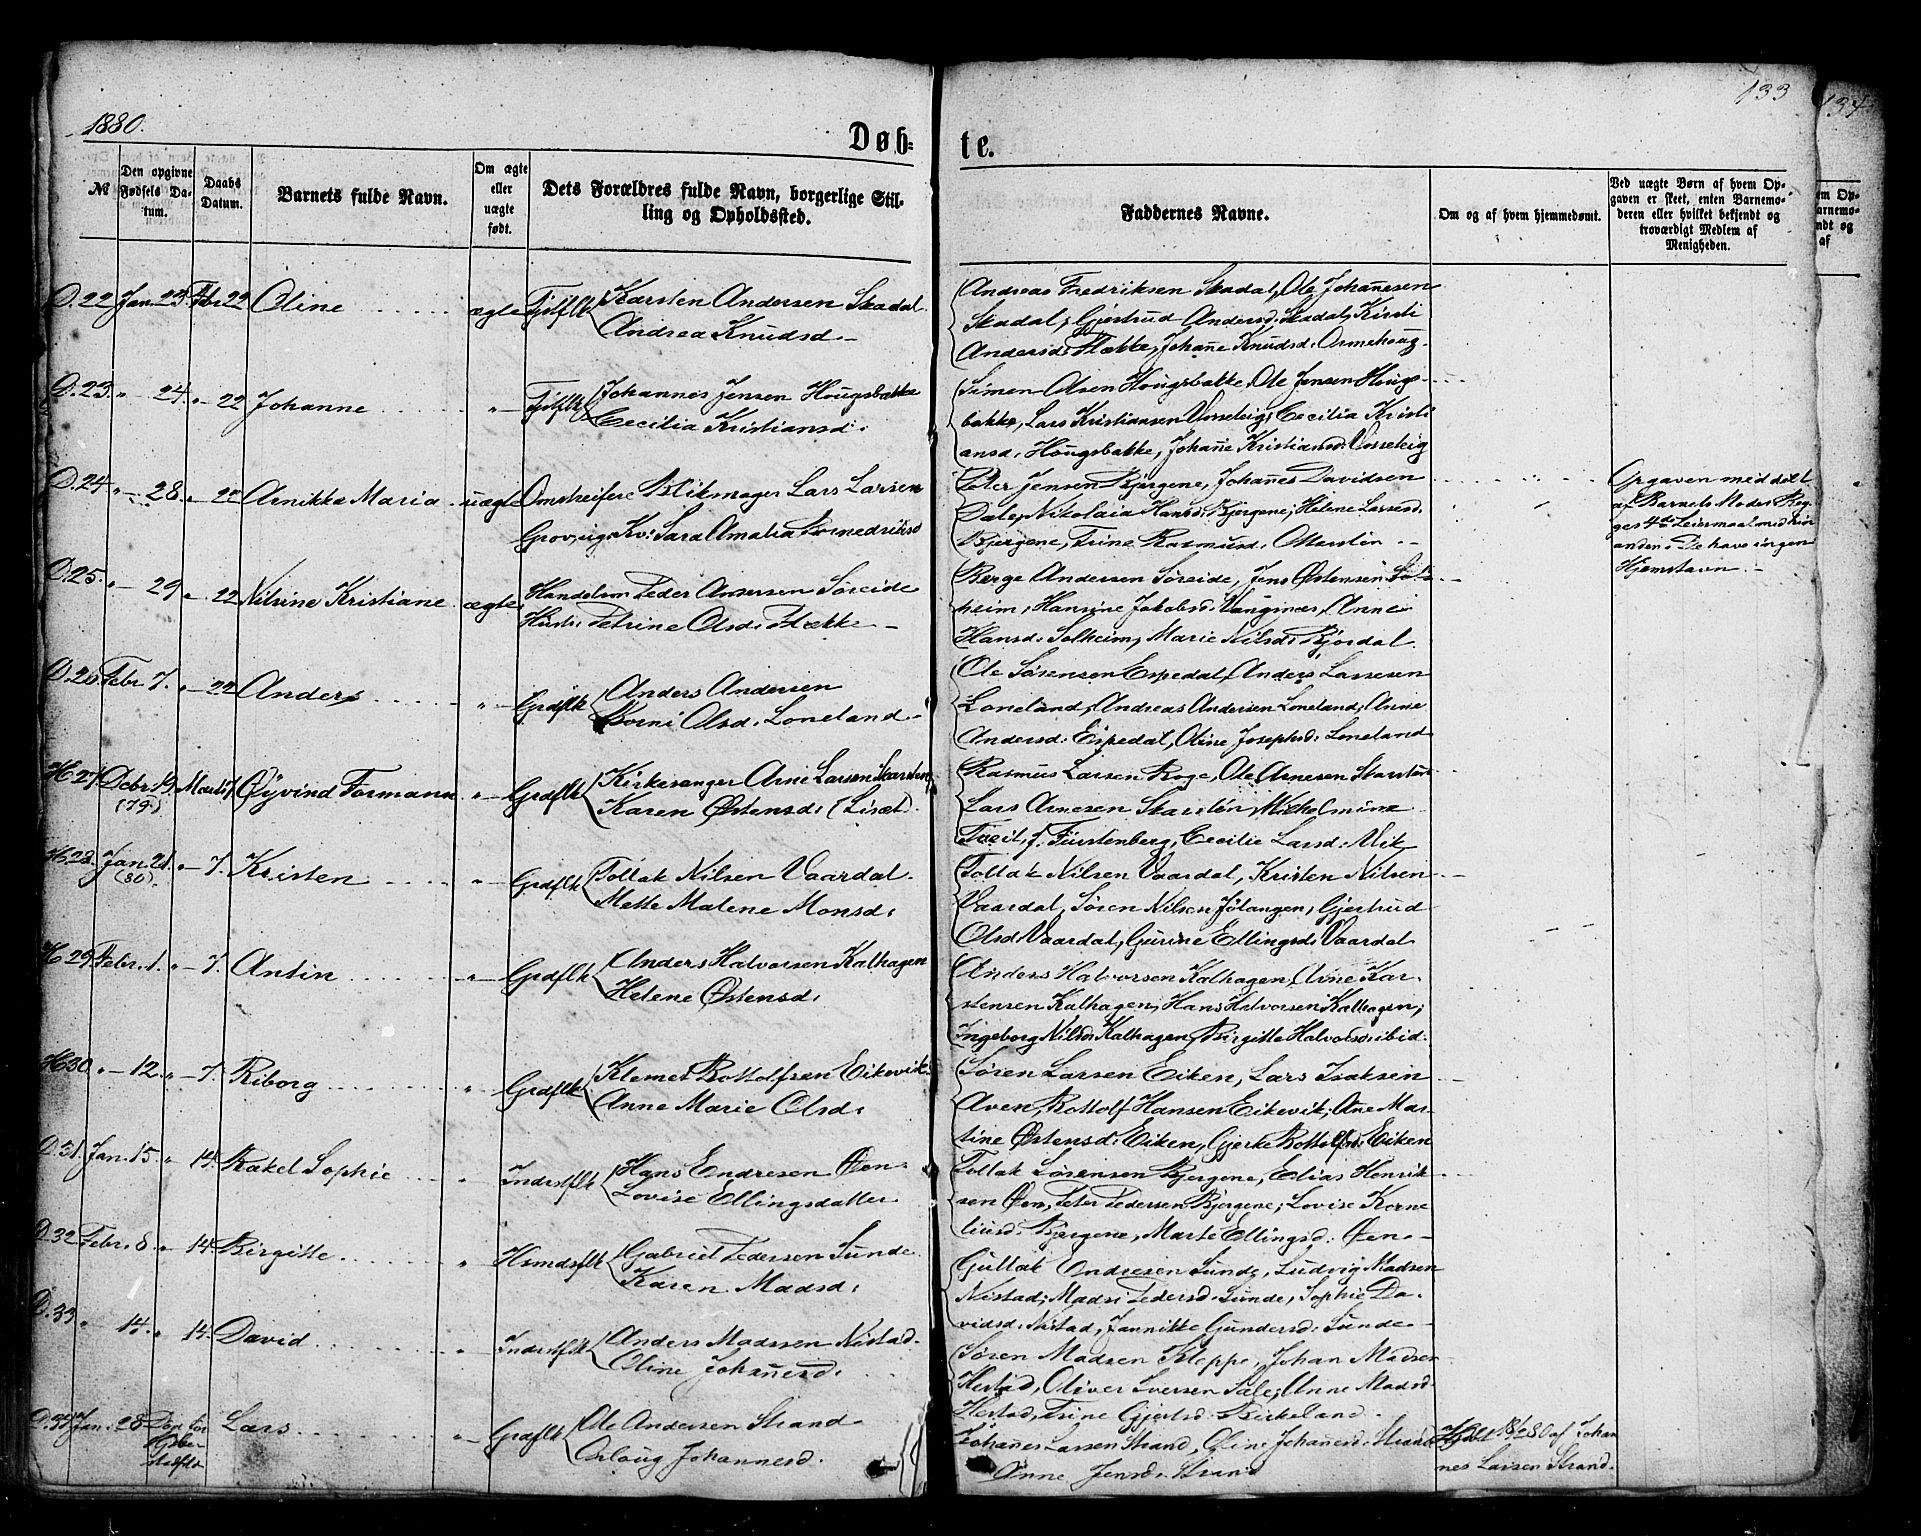 1880.
133
134
Døb-
te.
№
Den opgivne Fødsels Datum.
Daabs Datum.
Barnets fulde Navn.
Om ægte eller uægte født.
Dets Forældres fulde Navn, borgerlige Stilling og Opholdssted.
Faddernes Navne.
Om og af hvem hjemmedøbt.
Ved uægte Børn af hvem Opgaven er skeet, enten Barnemoderen eller hvilket bekjendt og troværdigt Medlem af Menigheden.
D. 22 Jan. 23 Fbr 22 Oline ægte Fjølflk Karsten Andersen Skadal.
Andrea Knudsd.
Andreas Fredriksen Skadal, Ole Johanesen
Skadal, Gjertrud Andersd. Skadal, Kristi
Andersd. Flække, Johane Knudsd. Ormehoug
D. 23. " 24. " 22 Johanne " Fjølflk Johannes Jensen Hougsbakke
Cecilia Kristiansd.
Simon Olsen Hougsbakke, Ole Jensen Hougs-
bakke, Lars Kristiansen Vasseteig, Cecilia Kristi
ansd. Hougsbakke, Johane Kristiansd. Vasseteig
D. 24 " 28. " 22 Annikka Maria uægte Omstreifere Blikmager Lars Larsen
Grov, ugv. Kv: Sara Amalia
Peter Jensen Bjergene, Johanes Davidsen
Dale, Nikolaia Hansd. Bjergene, Helene Larsd.
Bjergene, Trine Rasmusd. Otterstøn
Opgaven meddelt
af Barnets Moder. Beg-
ges 4de Leiermaal med hin
anden. De have ingen
Hjemstavn.
D. 25. " 29 " 22 Nilsine Kristiane ægte Handelsm Peder Andersen Søreide
Hustr. Petrine Olsd. Flække
Berge Andersen Søreide, Jens Østensen Sol-
heim, Hansine Jakobsd. Vangsnes, Anne
Hansd. Solheim, Marie Nilsd. Bjordal.
D. 26 Febr 7. " 22 Anders " Grdflk Anders Andersen
Borni Olsd. Loneland
Ole Sørensen Espedal, Anders Lassesen
Loneland, Andreas Andersen Loneland, Anne
Andersd. Espedal, Oline Josephsd. Loneland
H. 27 Debr. 19. (79) Marts 7 Øyvind Formann " Grdflk Kirkesanger Arne Larsen Skarsten
Karen Østensd. (Liset.
Rasmus Larsen Roge, Ole Arnesen Skarsten
Lars Arnesen Skarsten, Wilhelmine
Tveit, f. Fürstenberg, Cecilie Larsd. Vik
H. 28. Jan. 21. (80). " 7. Kristen " Grdflk Tollak Nilsen Vaardal.
Mette Malene Monsd.
Tollak Nilsen Vaardal, Kristen Nilsen
Vaardal, Søren Nilsen Jølangen, Gjertrud
Olsd. Vaardal, Gurine Ellingsd. Vaardal
H. 29 Febr. 1. " 7. Antin " Grdflk Anders Halvorsen Kalhagen
Helene Østensd.
Anders Halvorsen Kalhagen, Arne Kar-
stensen Kalhagen, Hans Halvorsen Kalhagen,
Ingeborg Nilsd. Kalhagen, Birgitte Halvorsd. ibid.
H. 30 " 12. " 7. Riborg " Grdflk Klemet Bottolfsen Eikevik
Anne Marie Olsd.
Søren Larsen Eiken, Lars Isaksen
Aven, Bottolf Hansen Eikevik, Ane Mar-
tine Østensd. Eiken, Gjerke Bottolfsd. Eiken
D. 31. Jan. 15. " 14. Rakel Sophie " Inderstflk Hans Endresen Øen
Lovise Ellingsdatter
Tollak Sørensen Bjergene, Elias Henrik-
sen Øen, Peter Pedersen Bjergene, Lovise Korne
liusd. Bjergene, Marte Ellingsd. Øen
D. 32 Febr. 8. " 14. Birgitte " Hsmdsflk Gabriel Pedersen Sunde
Karen Madsd.
Gullak Andresen Sunde, Ludvig Madsen
Nistad, Madsi Pedersd. Sunde, Sophie Da-
vidsd. Nistad, Jannikke Gundersd. Sunde
D. 33 " 14. " 14. David " Inderstflk Anders Madsen Nistad.
Oline Johanesd.
Søren Madsen Kleppe, Johan Madsen
Hestad, Oliver Iversen Sale, Anne Madsd.
Hestad, Trine Gjertsd. Birkeland.
D. 34 Jan. 28 Lars " Grdflk Ole Andersen Strand
Aslaug Johannesd.
Johanes Larsen Strand, Oline Johanesd. Strand
Anne Jensd. Strand
Hjdbt 18/2 80 af Johan
nes Larsen Strand.